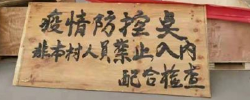 疫情防控点
非本村人员禁止入内
配合检查